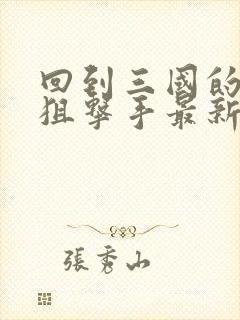 回到三國的
狙擊手最新
張秀山